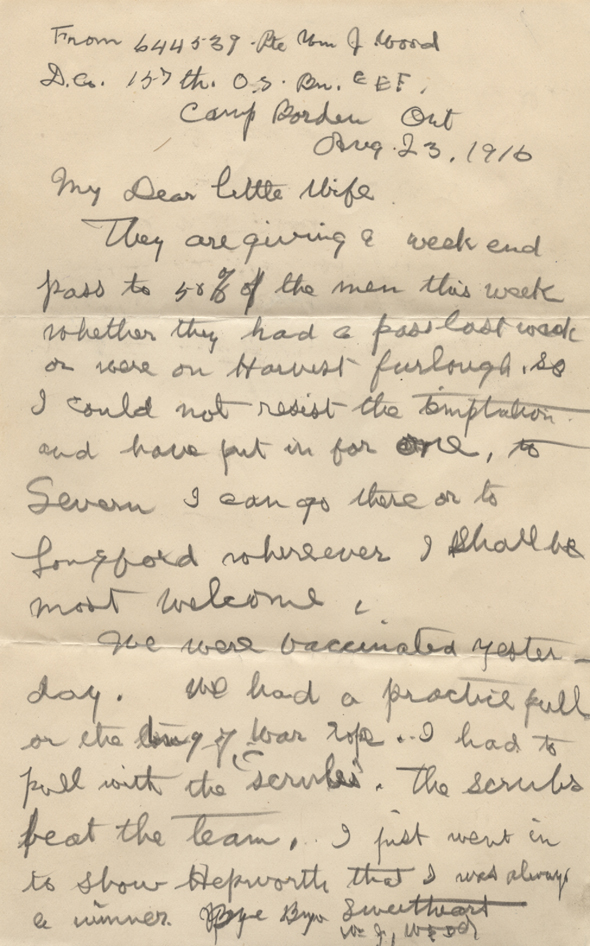 From 644539 Pte Wm J Wood
D.Co. 157th. O.S. Bn. CEF.
Camp Borden Ont
Aug. 23, 1916
My Dear little Wife
They are giving a week end
pass to 50% of the men this week
whether they had a pass last week
or were on Harvest furlough. so
I could not resist the temptation
and have put in for one, to
Severn I can go there or to
Longford wherever I shall be
most welcome.
We were vaccinated yester-
day. We had a practice pull
on the tug of war rope. I had to
pull with the "scrubs". The scrubs
beat the team. I just went in
to show Hepworth that I was always
a winner. Bye Bye Sweetheart
W. J. Wood